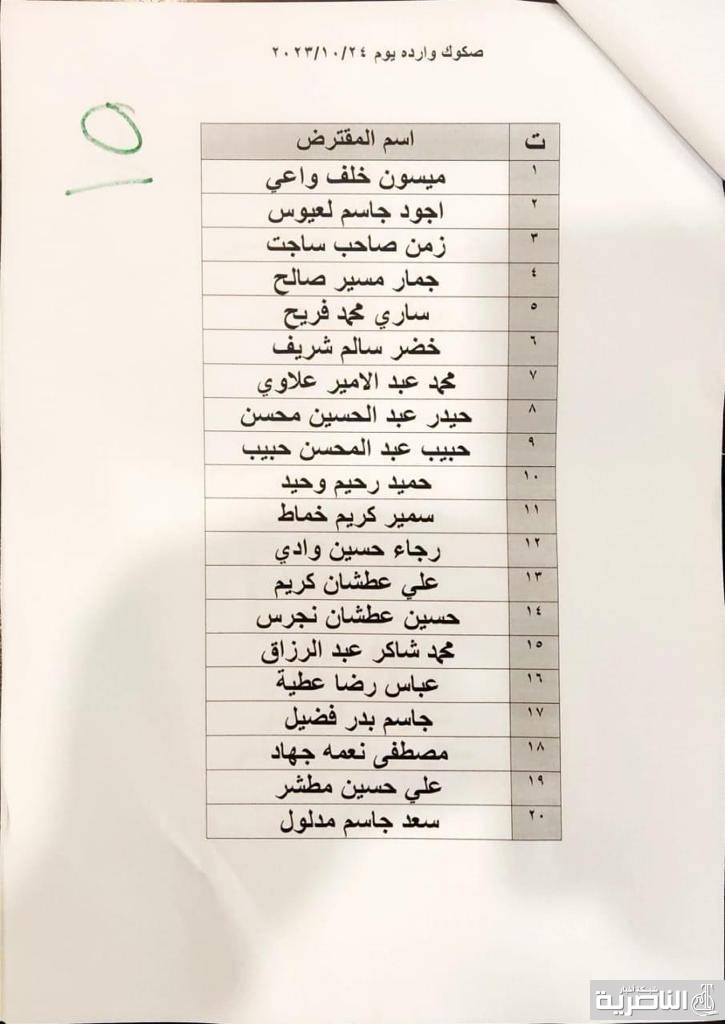 صكوك وارده يوم ٢٠٢٣/١٠/٢٤
ت اسم المقترض
١ ميسون خلف واعي
٢ اجود جاسم لعيوس
٣ زمن صاحب ساجت
٤ جمار مسير صالح
٥ ساري محمد فريح
٦ خضر سالم شريف
٧ محمد عبد الامير علاوي
٨ حيدر عبد الحسين محسن
٩ حبيب عبد المحسن حبيب
١٠ حميد رحيم وحيد
١١ سمير كريم خماط
١٢ رجاء حسين وادي
١٣ علي عطشان كريم
١٤ حسين عطشان نجرس
١٥ محمد شاكر عبد الرزاق
١٦ عباس رضا عطية
١٧ جاسم بدر فضيل
١٨ مصطفى نعمه جهاد
١٩ علي حسين مطشر
٢٠ سعد جاسم مدلول
شبكة اخبار
الناصرية